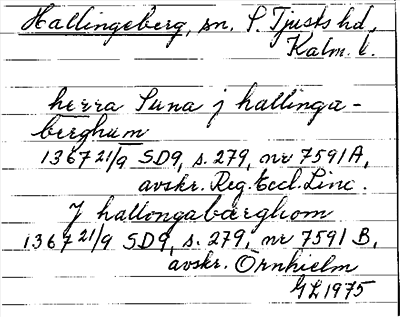 Hallingeberg, sn. S. Tjusts hd,
Kalm. l.
herra Suna j hallinga-
berghum
1367 21/9 SD9, s. 279, nr 7591 A,
avskr. Reg. Eccl. Linc.
J hallongabærghom
1367 21/9 SD9, s. 279, nr 7591 B,
avskr. Örnhielm
GL 1975